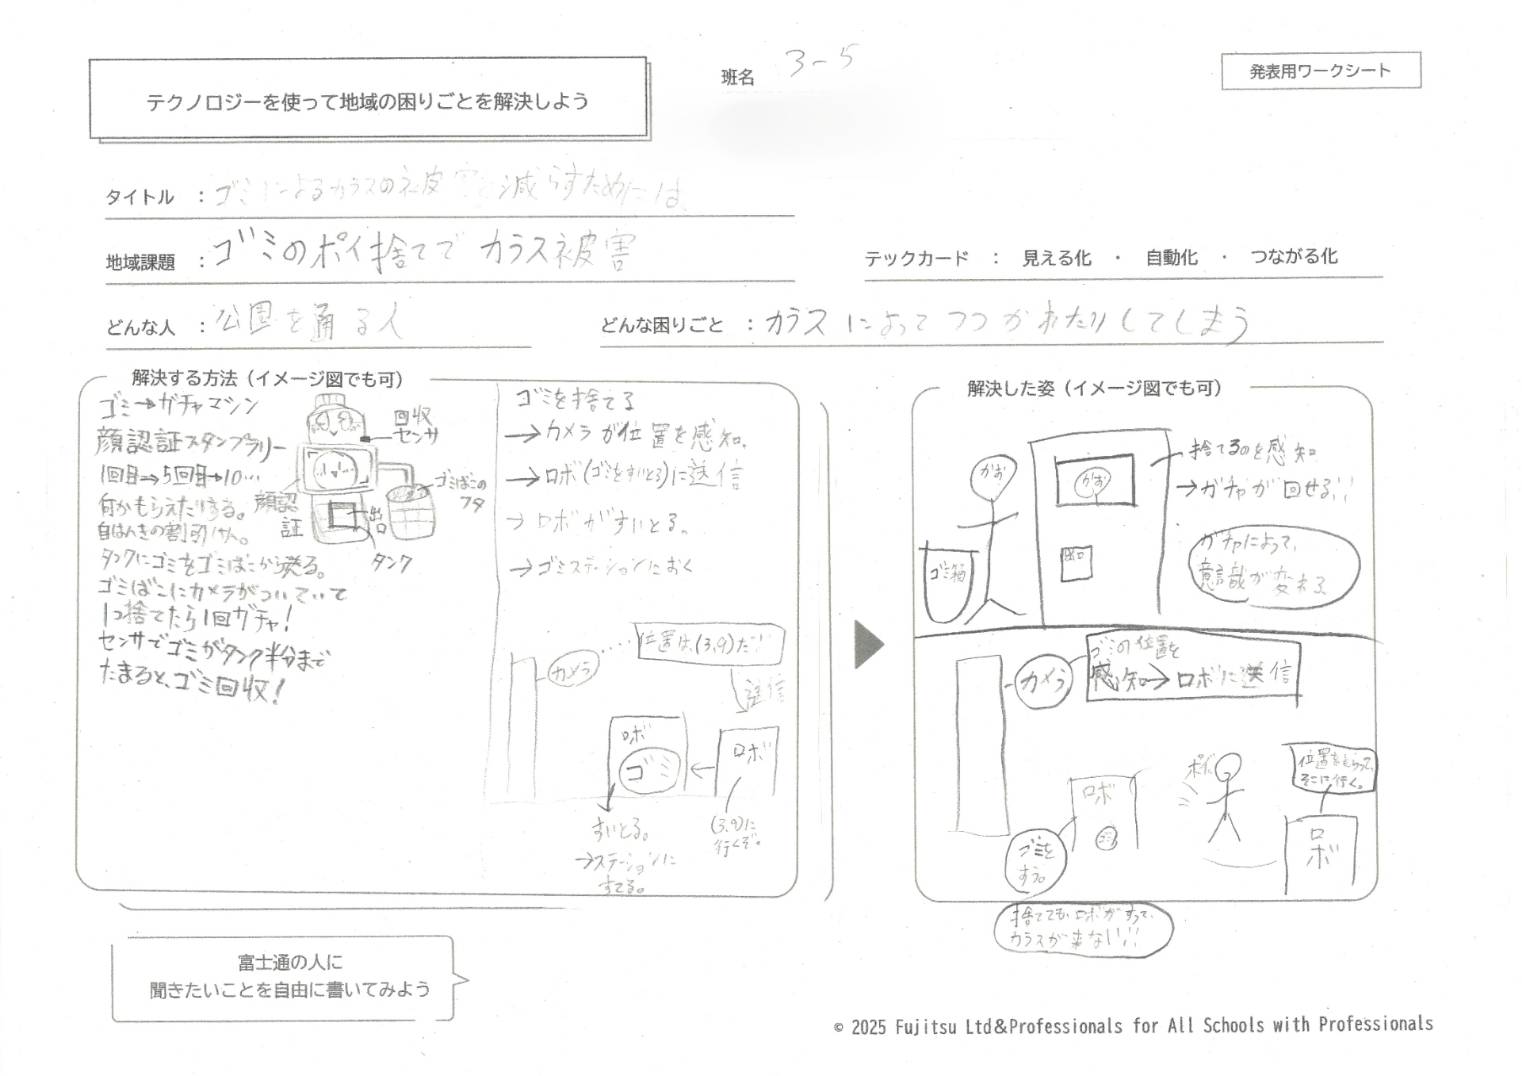 テクノロジーを使って地域の困りごとを解決しよう
班名 3-5
発表用ワークシート
タイトル : ゴミによるカラスの被害を減らすためには
地域課題 : ゴミのポイ捨てでカラス被害
テックカード : 見える化 ・ 自動化 ・ つながる化
どんな人 : 公園を通る人
どんな困りごと : カラスによってつつかれたりしてしまう
解決する方法（イメージ図でも可）
ゴミ→ガチャマシン
顔認証スタンプラリー
1回目→5回目→10…
何かもらえたりする。
自はんきの割引け人。
タンクにゴミをゴミばこから送る。
ゴミばこにカメラがついていて
1つ捨てたら1回ガチャ!
センサでゴミがタンク半分まで
たまると、ゴミ回収!
回収
センサ
顔認
証
出口
ゴミばこの
フタ
タンク
ゴミを捨てる
→カメラが位置を感知、
→ロボ(ゴミをすいとる)に送信
→ロボがすいとる。
→ゴミステーションにおく
位置は、(3,9)だ!!
カメラ
送信
ロボ
ゴミ
ロボ
すいとる。
→ステーションに
すてる。
(3,9)に
行くぞ。
解決した姿（イメージ図でも可）
かお
かお
ゴミ箱
出口
捨てるのを感知
→ガチャが回せる!!
ガチャによって、
意識が変わる
カメラ
ゴミの位置を
感知→ロボに送信
ロボ
ゴミ
ゴミを
すう。
ポイ
位置をもらって、
そこに行く。
ロボ
捨ててもロボがすって、
カラスが来ない!!
富士通の人に
聞きたいことを自由に書いてみよう
© 2025 Fujitsu Ltd&Professionals for All Schools with Professionals